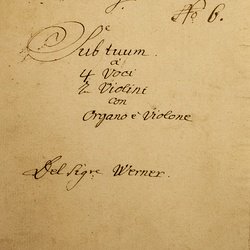 No 6.
Sub tuum
à
4 Voci
2 Violini
con
Organo è Violone
Del Sigre Werner.